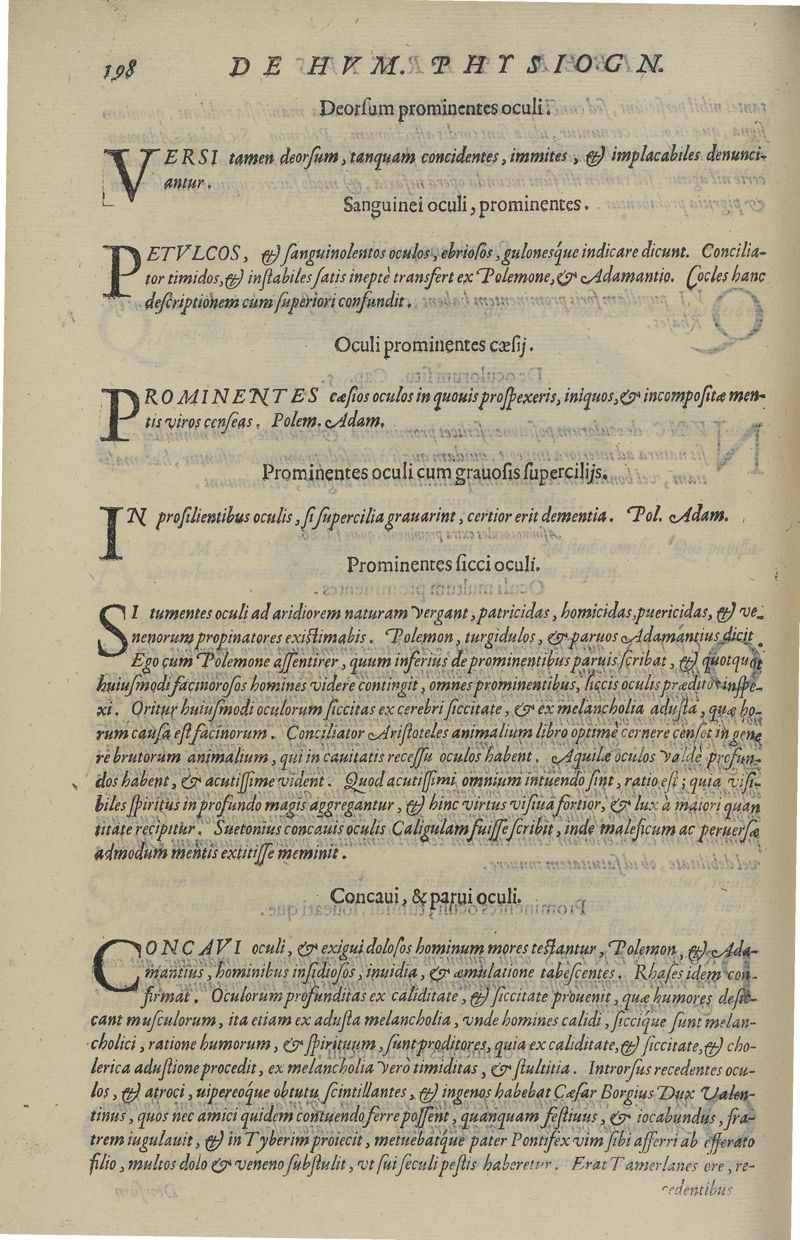 198 DE HVM. PHYSIOGN.
Deorſum prominentes oculi.
VERSI tamen deorſum, tanquam concidentes, immites, & implacabiles denunci-
antur.
Sanguinei oculi, prominentes.
PETVLCOS, & ſanguinolentos oculos, ebrioſos, guloneſq́ue indicare dicunt. Concilia-
tor timidos, & inſtabiles ſatis ineptè transfert ex Polemone, & Adamantio. Cocles hanc
deſcriptionem cum ſuperiori confundit.
Oculi prominentes cæſij.
PROMINENTES cæſios oculos in quouis proſpexeris, iniquos, & incompoſitæ men-
tis viros cenſeas. Polem. Adam.
Prominentes oculi cum grauoſis ſupercilijs.
IN proſilientibus oculis, ſi ſupercilia grauarint, certior erit dementia. Pol. Adam.
Prominentes ſicci oculi.
SI tumentes oculi ad aridiorem naturam vergant, patricidas, homicidas, puericidas, & ve-
nenorum propinatores exiſtimabis. Polemon, turgidulos, & paruos Adamantius dicit.
Ego cum Polemone aſſentirer, quum inferius de prominentibus paruis ſcribat, & quotquot
huiuſmodi facinoroſos homines videre contingit, omnes prominentibus, ſiccis oculis præditos inſpe-
xi. Oritur huiuſmodi oculorum ſiccitas ex cerebri ſiccitate, & ex melancholia aduſta, quæ ho-
rum cauſa eſt facinorum. Conciliator Ariſtoteles animalium libro optimè cernere cenſet in gene
re brutorum animalium, qui in cauitatis receſſu oculos habent. Aquilæ oculos valdè profun-
dos habent, & acutiſſime vident. Quod acutiſſimi omnium intuendo ſint, ratio eſt; quia viſi-
biles ſpiritus in profundo magis aggregantur, & hinc virtus viſiua fortior, & lux à maiori quan
titate recipitur. Suetonius concauis oculis Caligulam fuiſſe ſcribit, inde maleficum ac peruerſæ
admodum mentis extitiſſe meminit.
Concaui, & parui oculi.
CONCAVI oculi, & exigui doloſos hominum mores teſtantur, Polemon, & Ada-
mantius, hominibus inſidioſos, inuidia, & æmulatione tabeſcentes. Rhaſes idem con-
firmat. Oculorum profunditas ex caliditate, & ſiccitate prouenit, quæ humores deſic-
cant muſculorum, ita etiam ex aduſta melancholia, vnde homines calidi, ſiccique ſunt melan-
cholici, ratione humorum, & ſpirituum, ſunt proditores, quia ex caliditate, & ſiccitate, & cho-
lerica aduſtione procedit, ex melancholia verò timiditas, & ſtultitia. Introrſus recedentes ocu-
los, & atroci, uipereoque obtutu ſcintillantes, & ingenos habebat Cæſar Borgius Dux Valen-
tinus, quos nec amici quidem contuendo ferre poſſent, quanquam feſtiuus, & iocabundus, fra-
trem iugulauit, & in Tyberim proiecit, metuebatq́ue pater Pontifex vim ſibi afferri ab efferato
filio, multos dolo & veneno ſubſtulit, vt ſui ſeculi peſtis haberetur. Erat Tamerlanes ore, re-
cedentibus